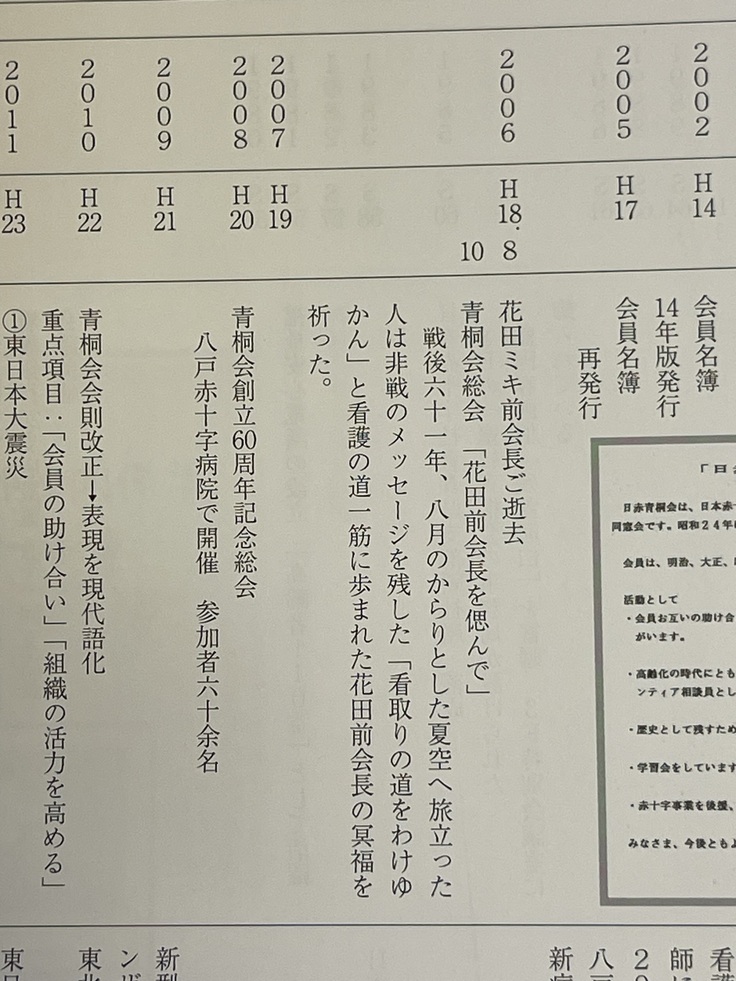 2002
H14
会員名簿
14年版発行
2005
H17
会員名簿
再発行
2006
H18.8
花田ミキ前会長ご逝去
10
青桐会総会　「花田前会長を偲んで」
戦後六十一年、八月のからりとした夏空へ旅立った
人は非戦のメッセージを残した「看取りの道をわけゆ
かん」と看護の道一筋に歩まれた花田前会長の冥福を
祈った。
2007
H19
2008
H20
青桐会創立60周年記念総会
八戸赤十字病院で開催　参加者六十余名
2009
H21
2010
H22
青桐会会則改正→表現を現代語化
重点項目：「会員の助け合い」「組織の活力を高める」
2011
H23
①東日本大震災
日赤青桐会は、日本赤
同窓会です。昭和２４年
会員は、明治、大正、
活動として
・会員お互いの助け合
がいます。
・高齢化の時代にとも
ンティア相談員とし
・歴史として残すため
・学習会をしています
・赤十字事業を後援、
みなさま、今後とも
看護
師
八戸
新
新型
ン
東北
東日